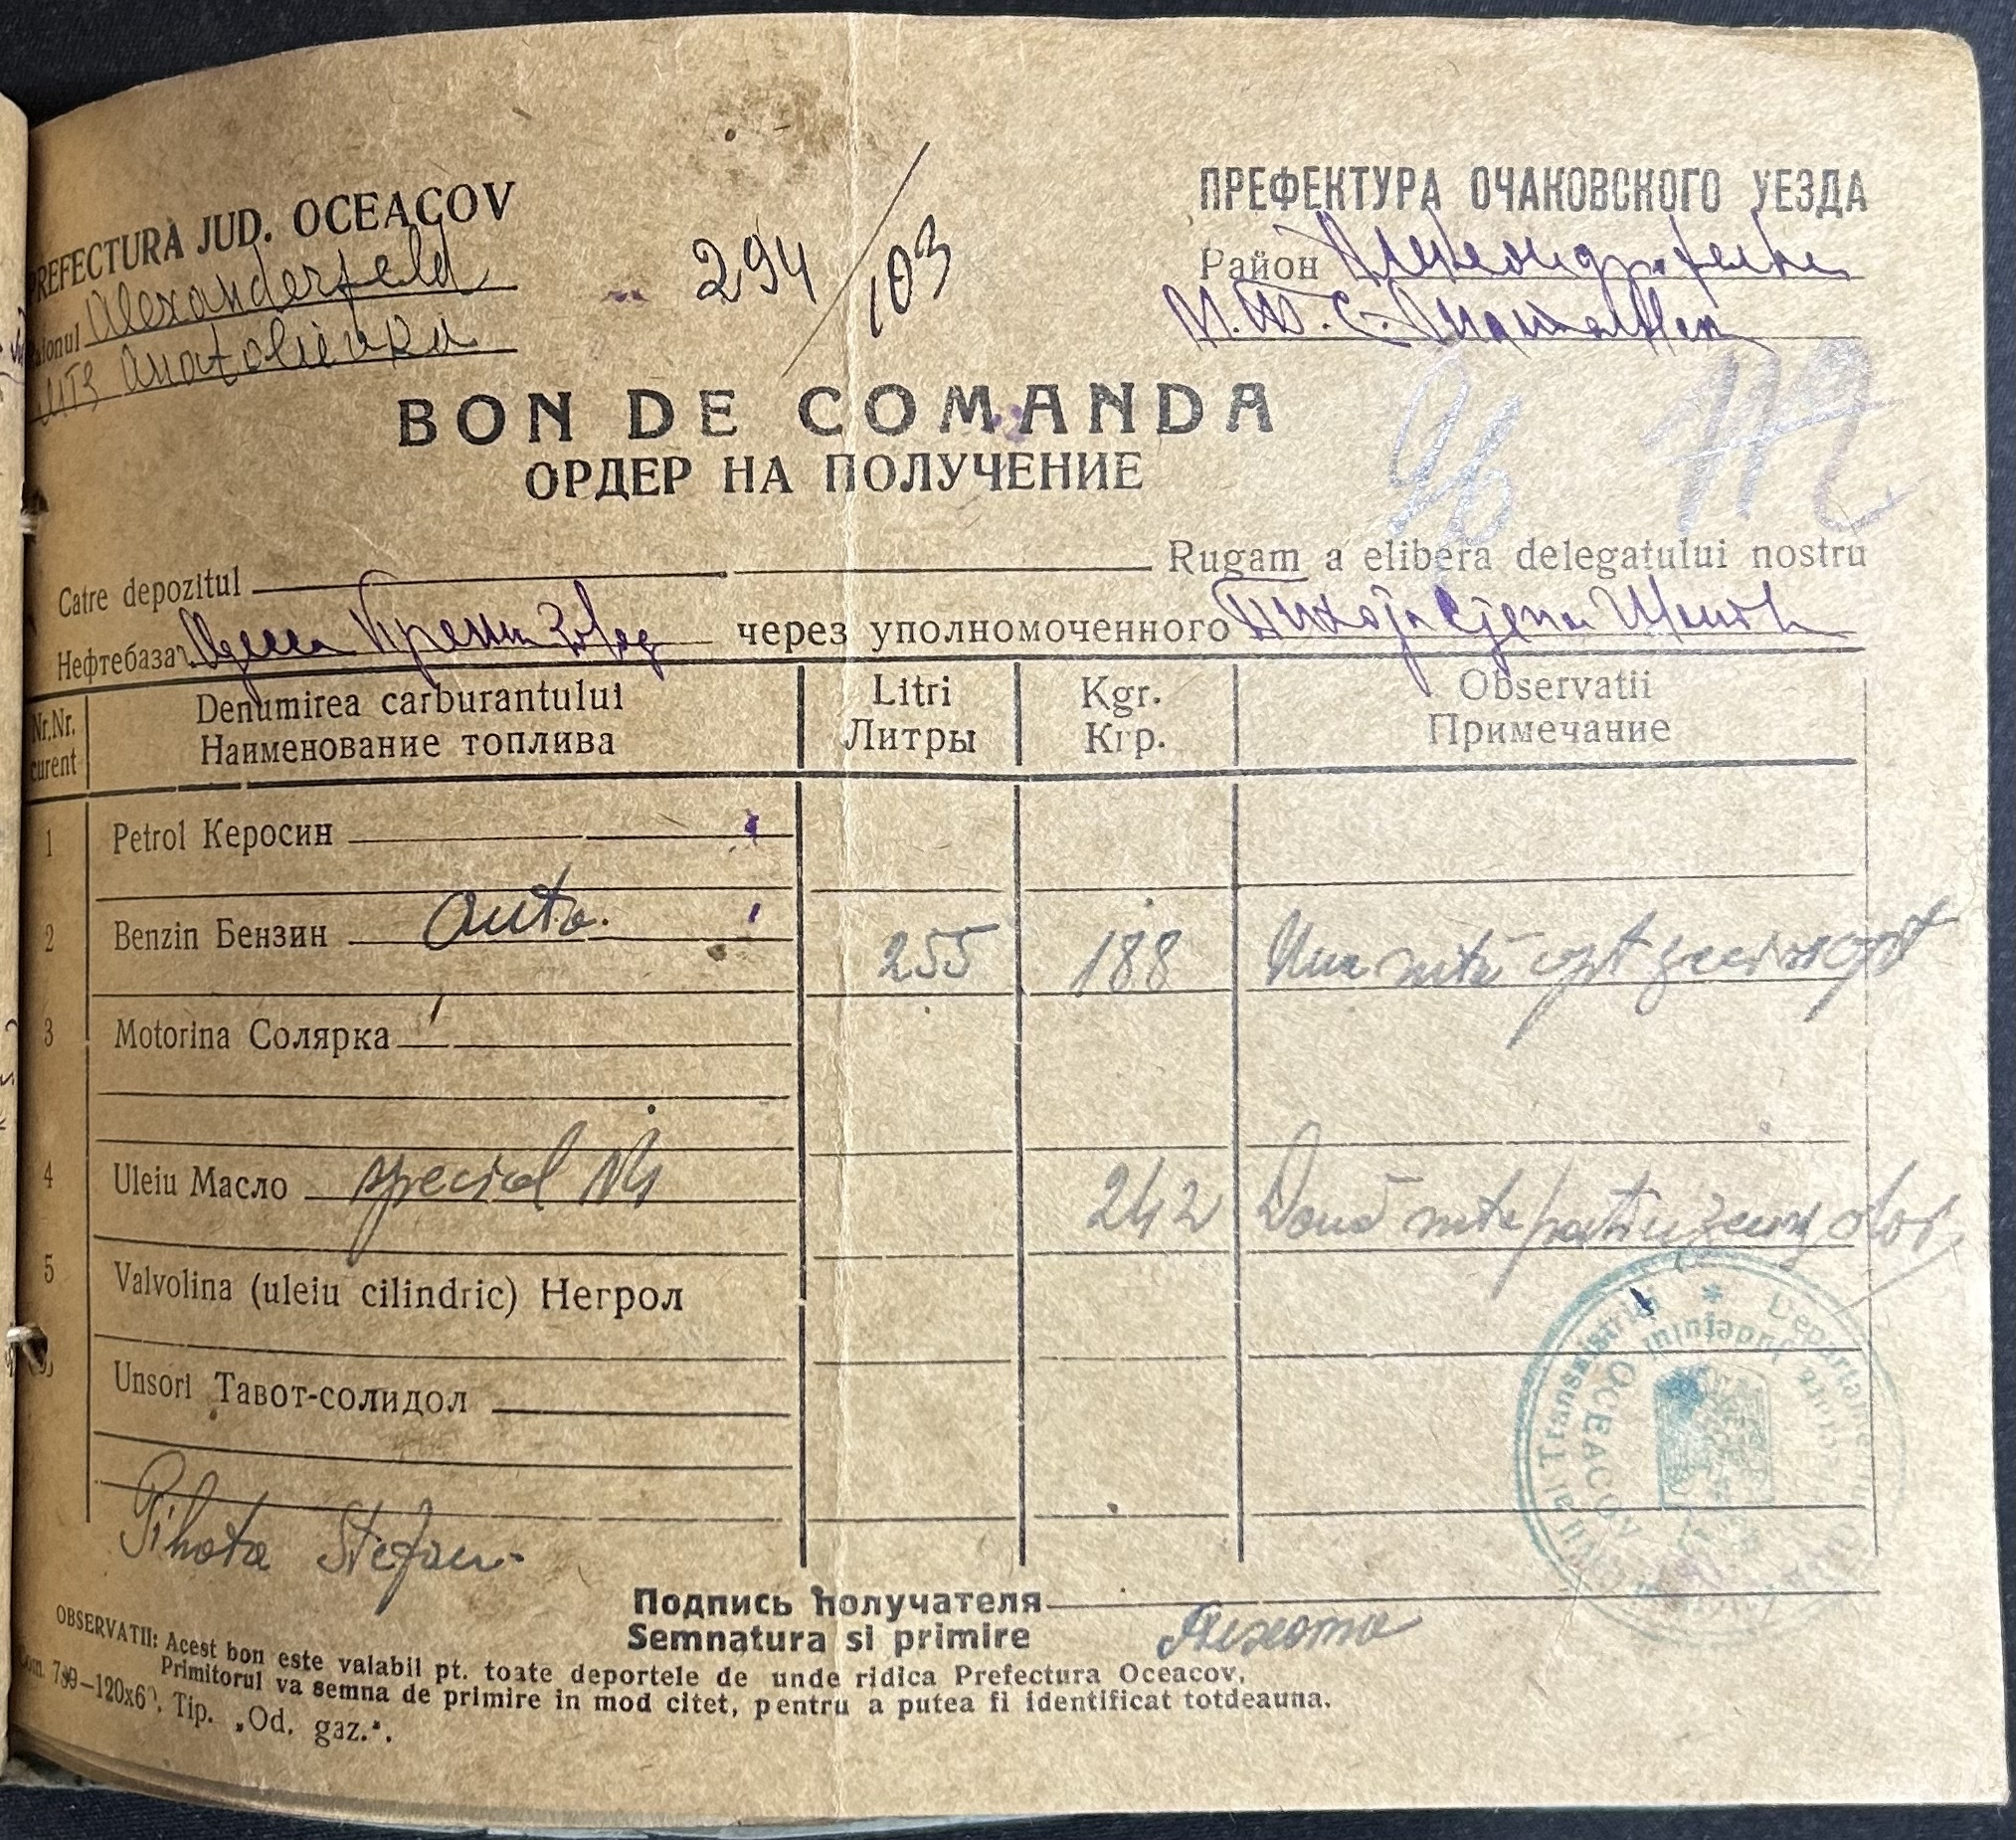 PREFECTURA JUD. OCEACOV
Alexanderfeld
MTS Anatolievka
294/103
ПРЕФЕКТУРА ОЧАКОВСКОГО УЕЗДА
Район
М.Т.С.
BON DE COMANDA
ОРДЕР НА ПОЛУЧЕНИЕ
96 112
Catre depozitul Rugam a elibera delegatului nostru
Нефтебаза Одесса через уполномоченного
Nr.Nr. curent
Denumirea carburantului
Наименование топлива
Litri
Литры
Kgr.
Кгр.
Observatii
Примечание
1 Petrol Керосин
2 Benzin Бензин auto. 255 188 Una sută opt zeci opt
3 Motorina Солярка
4 Uleiu Масло special N4 242 Două sute patru zeci doi
5 Valvolina (uleiu cilindric) Негрол
Unsori Тавот-солидол
Pihota Stefan
Подпись получателя
Semnatura si primire Пихота
OBSERVATII: Acest bon este valabil pt. toate deportele de unde ridica Prefectura Oceacov,
Primitorul va semna de primire in mod citet, pentru a putea fi identificat totdeauna.
Com. 799—120x6 , Tip. „Od. gaz.".
al Transnistriei
OCEACOV